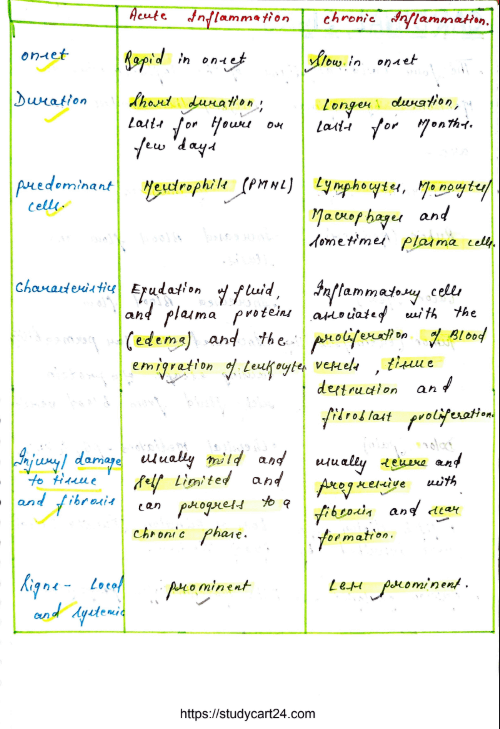 Acute Inflammation
chronic Inflammation.
onset
Rapid in onset
Slow in onset
Duration
Short duration;
Lasts for Hours or
few days
Longer duration,
Lasts for Months.
predominant
cells.
Neutrophils (PMNL)
Lymphocytes, Monocytes/
Macrophages and
sometimes plasma cells.
Characteristics
Exudation of fluid,
and plasma proteins
(edema) and the
emigration of Leukocytes
Inflammatory cells
associated with the
proliferation of Blood
vessels, tissue
destruction and
fibroblast proliferation.
Injury/ damage
to tissue
and fibrosis
usually mild and
Self Limited and
can progress to a
chronic phase.
usually severe and
progressive with
fibrosis and scar
formation.
Signs - Local
and systemic
prominent
Less prominent.
https://studycart24.com